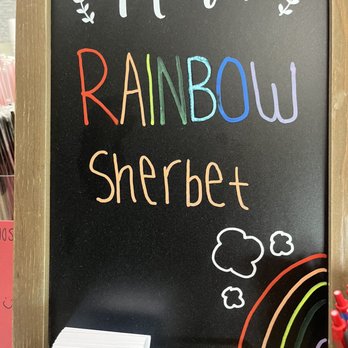 RAINBOW
Sherbet